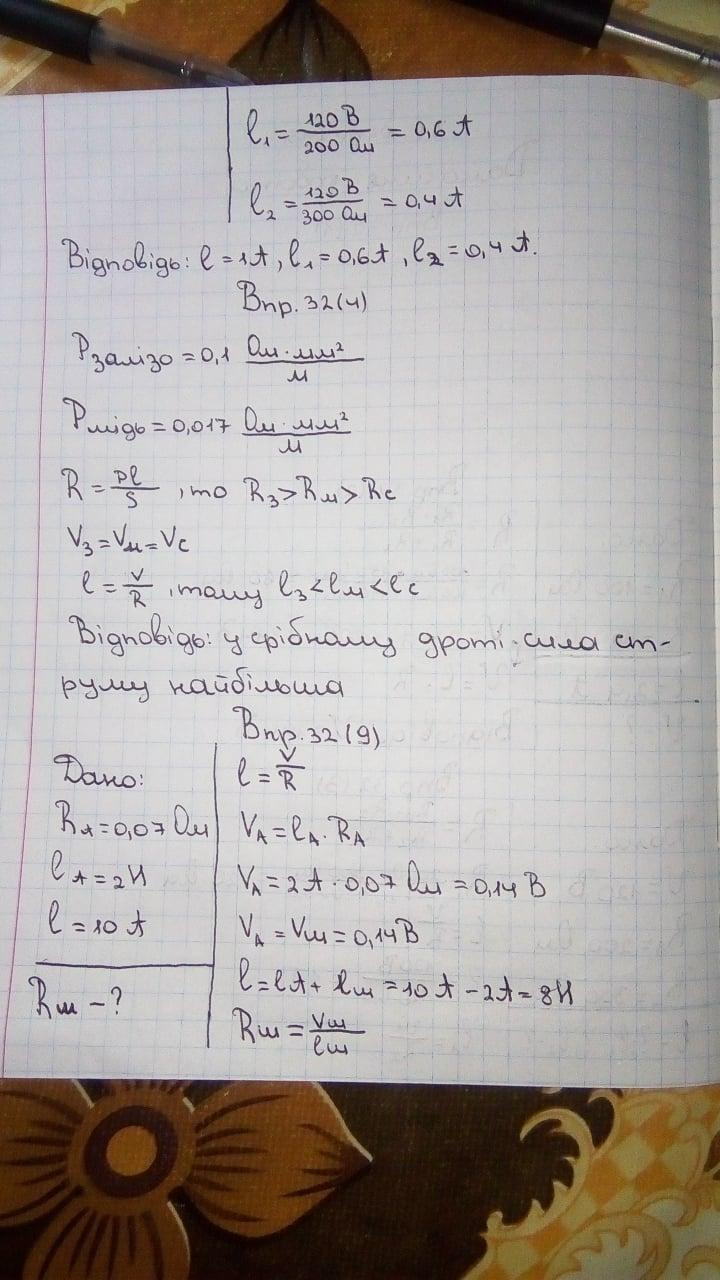 l₁ = 120 В / 200 Ом = 0,6 А
l₂ = 120 В / 300 Ом = 0,4 А
Відповідь: l = 1А, l₁ = 0,6А, l₂ = 0,4 А.
Впр. 32(4)
Pзалізо = 0,1 Ом · мм² / м
Pмідь = 0,017 Ом · мм² / м
R = Pl / S , то Rз > Rм > Rс
Vз = Vм = Vс
l = V / R , тому lз < lм < lс
Відповідь: у срібному дроті сила ст-
руму найбільша
Впр. 32(9)
Дано:
RА = 0,07 Ом
lА = 2А
l = 10 А
Rш - ?
l = V / R
VА = lА · RА
VА = 2А · 0,07 Ом = 0,14 В
VА = Vш = 0,14 В
l = lА + lш = 10 А - 2А = 8А
Rш = Vш / lш